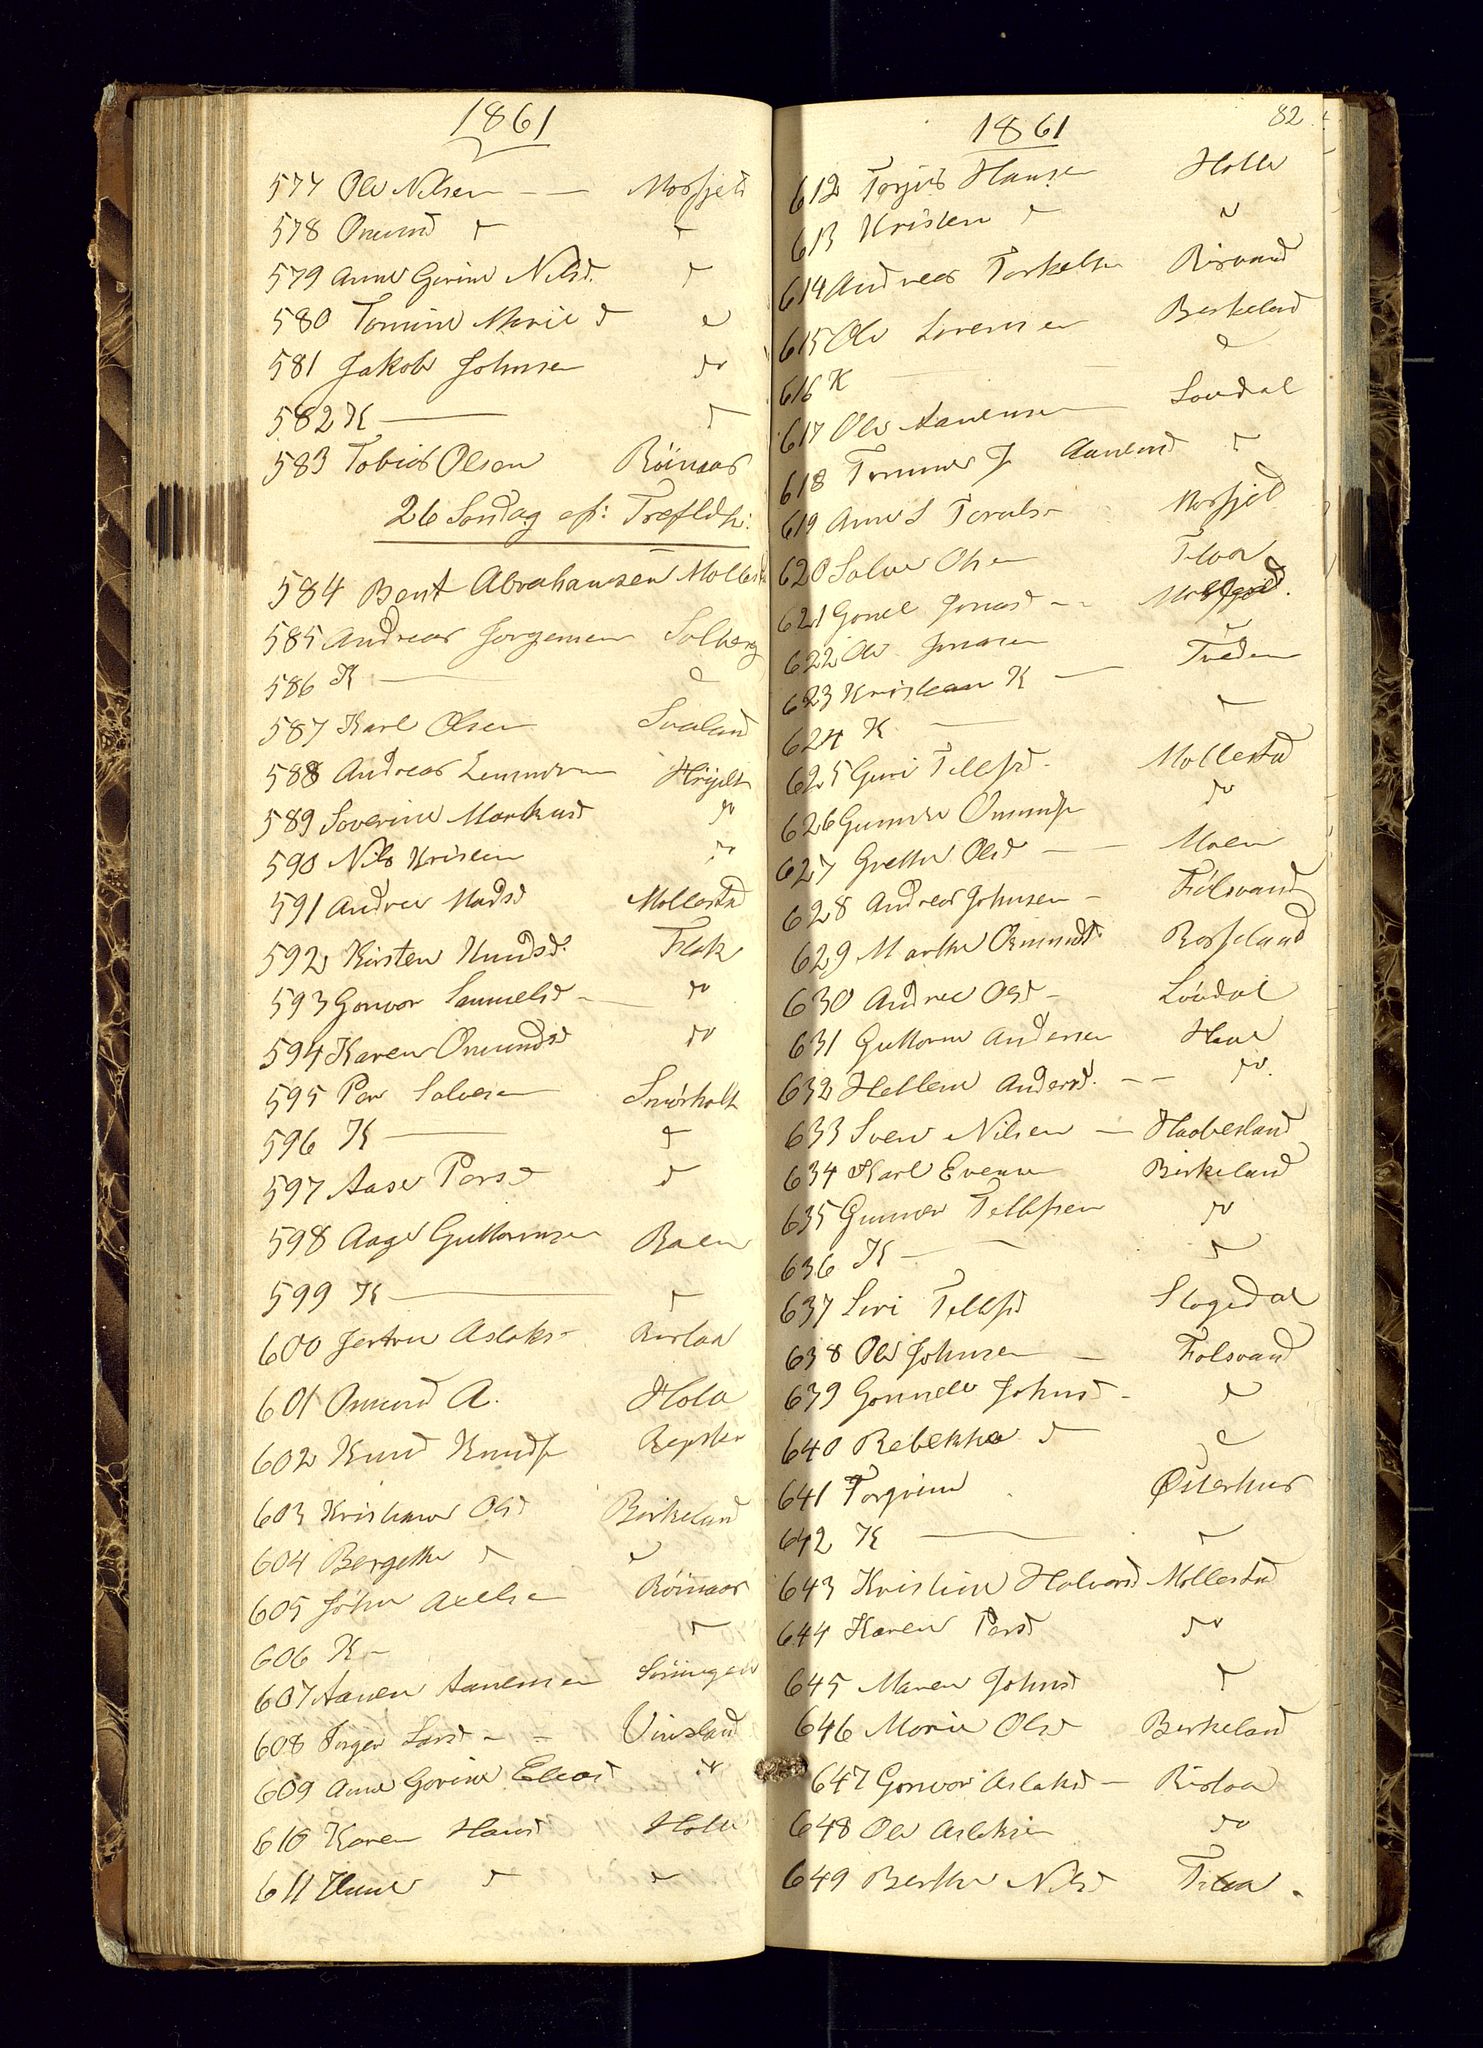 1861
577 Ole Nilsen — — Mosfjeld
578 Omund d d
579 Anne Gurine Nilsd. d
580 Tomine Marie d d
581 Jakob Johnsen do
582 K — d
583 Tobias Olsen Röinaas
26 Søndag ef: Trefldh:
584 Bent Abrahamsen Mollestad
585 Andreas Jørgensen Solberg
586 K — d
587 Karl Olsen Svaland
588 Andreas
589 Severine Markusd do
590 Nils Kristen do
591 Andrea Madsd Mollestad
592 Kirsten Knudsd. Flak
593 Gonvor Samuelsd — do
594 Karen Omundsd do
595 Per Salvesen Smørholt
596 K — d
597 Aase Persd d
598 Aage Guttormsen Raen
599 K — d
600 Jertru Aslaks- Rislaa
601 Omund A. Hola
602 Knud Knuds
603 Kristiane Olsd Birkeland
604 Bergethe d d
605 John Axelsen Röinaas
606 K — d
607 Aanen Aanensen
608 Larsd — — Vinsland
609 Anne Gorine Eliasd do
610 Karen Hansd Holle
611 d d
82
1861
612 Torjus Hansen Holle
613 Kristen d d
614 Andreas Torkelsen Risvand
615 Ole Sorensen Berkeland
616 K d
617 Ole Aanensen Søvdal
618 J Aanensd d
619 Anne S Mosfjeld
620 Salve Olsen
621 Gonel Jonasd — — Mosfjeld.
622 Ole Jonasen
623 Kristian K — Tveden
624 K. — d
625 Guri Tellefsd. Mollestad
626 Gunder Omunds do
627 Grethe Olsd — — Moen
628 Andreas Johnsen — Fölsvand
629 Marthe Omundsd. Rosseland
630 Andrea Olsd — Løvdal
631 Guttorm Andersen
632 Hellene Andersd. — — do.
633 Sven Nilsen — Haabesland
634 Karl Evensen Birkeland
635 Gunder Tellefsen do
636 K — d
637 Siri Tellefsd Slogedal
638 Ole Johnsen — Fölsvand
639 Gonnelle Johnsd — d
640 Rebekka d d
641 Torgrim Østerhus
642 K — d
643 Kristine Halvorsd Mollestad
644 Karen Persd do
645 Maren Johnsd d
646 Marie Olsd Berkeland
647 Gonvor Aslaksd — Rislaa
648 Ole Aslaksen do
649 Berthe Nilsd